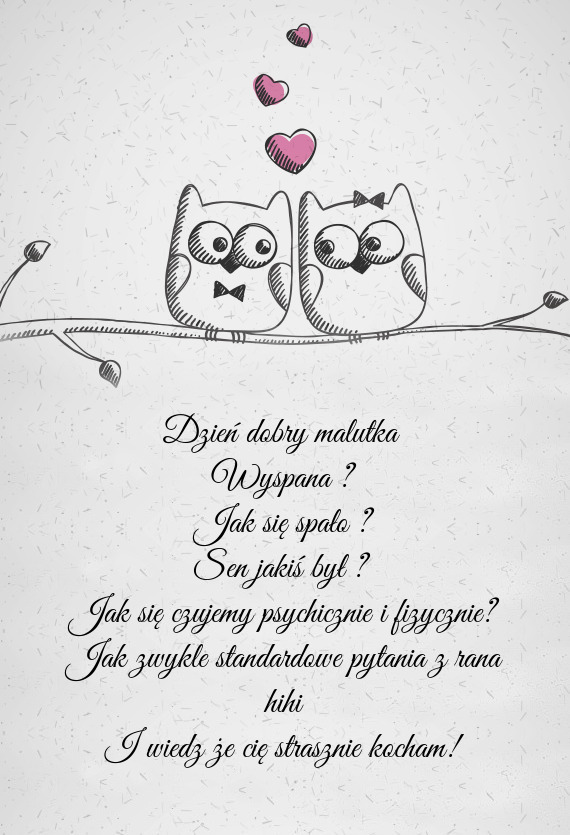 Dzień dobry malutka
Wyspana ?
Jak się spało ?
Sen jakiś był ?
Jak się czujemy psychicznie i fizycznie?
Jak zwykle standardowe pytania z rana
hihi
I wiedz że cię strasznie kocham!